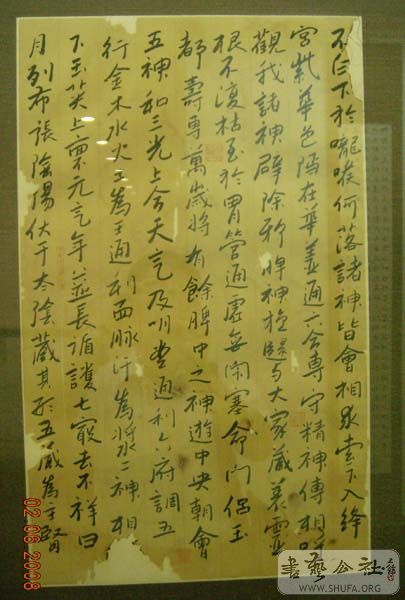 不白下於嚨喉何落諸神皆會相求索下入絳
宮紫華色隱在華蓋通六合專守精神傳相呼
觀我諸神辟除邪脾神還歸與大家藏養靈
根不復枯至於胃管通虛無閉塞命門侶玉
都壽專萬歲將有餘脾中之神遊中央朝會
五神和三光上合天氣及明堂通利六府調五
行金木水火土為王通利血脈汗為漿二神相
下玉英上稟元氣年益長循護七竅去不祥日
月列布張陰陽伏于太陰藏其形五藏為主腎
02 06 2008
書藝公社
WWW.SHUFA.ORG